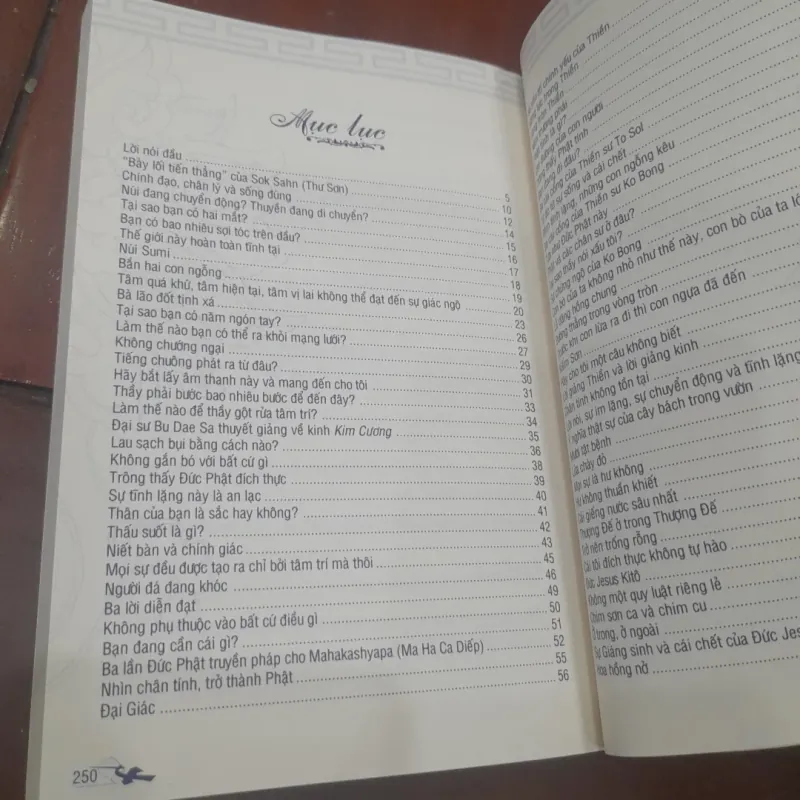 Mục lục
Lời nói đầu 5
"Bảy lối tiến thẳng" của Sok Sahn (Thư Sơn) 10
Chính đạo, chân lý và sống đúng 12
Núi đang chuyển động? Thuyền đang di chuyển? 14
Tại sao bạn có hai mắt? 15
Bạn có bao nhiêu sợi tóc trên đầu? 16
Thế giới này hoàn toàn tĩnh tại 17
Núi Sumi 18
Bắn hai con ngỗng 19
Tâm quá khứ, tâm hiện tại, tâm vị lai không thể đạt đến sự giác ngộ 20
Bà lão đốt tịnh xá 23
Tại sao bạn có năm ngón tay? 26
Làm thế nào bạn có thể ra khỏi mạng lưới? 27
Không chướng ngại 29
Tiếng chuông phát ra từ đâu? 30
Hãy bắt lấy âm thanh này và mang đến cho tôi 31
Thầy phải bước bao nhiêu bước để đến đây? 33
Làm thế nào để thầy gột rửa tâm trí? 34
Đại sư Bu Dae Sa thuyết giảng về kinh Kim Cương 35
Lau sạch bụi bằng cách nào? 36
Không gắn bó với bất cứ gì 38
Trông thấy Đức Phật đích thực 39
Sự tĩnh lặng này là an lạc 40
Thân của bạn là sắc hay không? 41
Thấu suốt là gì? 42
Niết bàn và chính giác 43
Mọi sự đều được tạo ra chỉ bởi tâm trí mà thôi 45
Người đá đang khóc 46
Ba lời diễn đạt 49
Không phụ thuộc vào bất cứ điều gì 50
Bạn đang cần cái gì? 51
Ba lần Đức Phật truyền pháp cho Mahakashyapa (Ma Ha Ca Diếp) 52
Nhìn chân tính, trở thành Phật 55
Đại Giác 56
250
chính yếu của Thiền
trong Thiền
Thiền
là gì?
của con người
thấy Phật tính
đi đâu?
của Thiền sư To Sol
sự sống và cái chết
lặng, những con ngỗng kêu
của Thiền sư Ko Bong
Đức Phật này
và các chân sư ở đâu?
thầy nói xấu tôi?
ngộ của Ko Bong
bò của ta không nhỏ như thế này, con bò của ta
hồng chung
thẳng trong vòng tròn
khi con lừa ra đi thì con ngựa đã đến
Sơn
cho tôi một câu không biết
giảng Thiền và lời giảng kinh
tính không tồn tại
nói, sự im lặng, sự chuyển động và tĩnh lặng
nghĩa thật sự của cây bách trong vườn
tật bệnh
cháy đỏ
sự là hư không
không thuần khiết
Cái giếng nước sâu nhất
Thượng Đế ở trong Thượng Đế
Trở nên trống rỗng
Cái tôi đích thực không tự hào
Đức Jesus Kitô
Không một quy luật riêng lẻ
Chim sơn ca và chim cu
Ở trong, ở ngoài
Sự Giáng sinh và cái chết của Đức
Hoa hồng nở